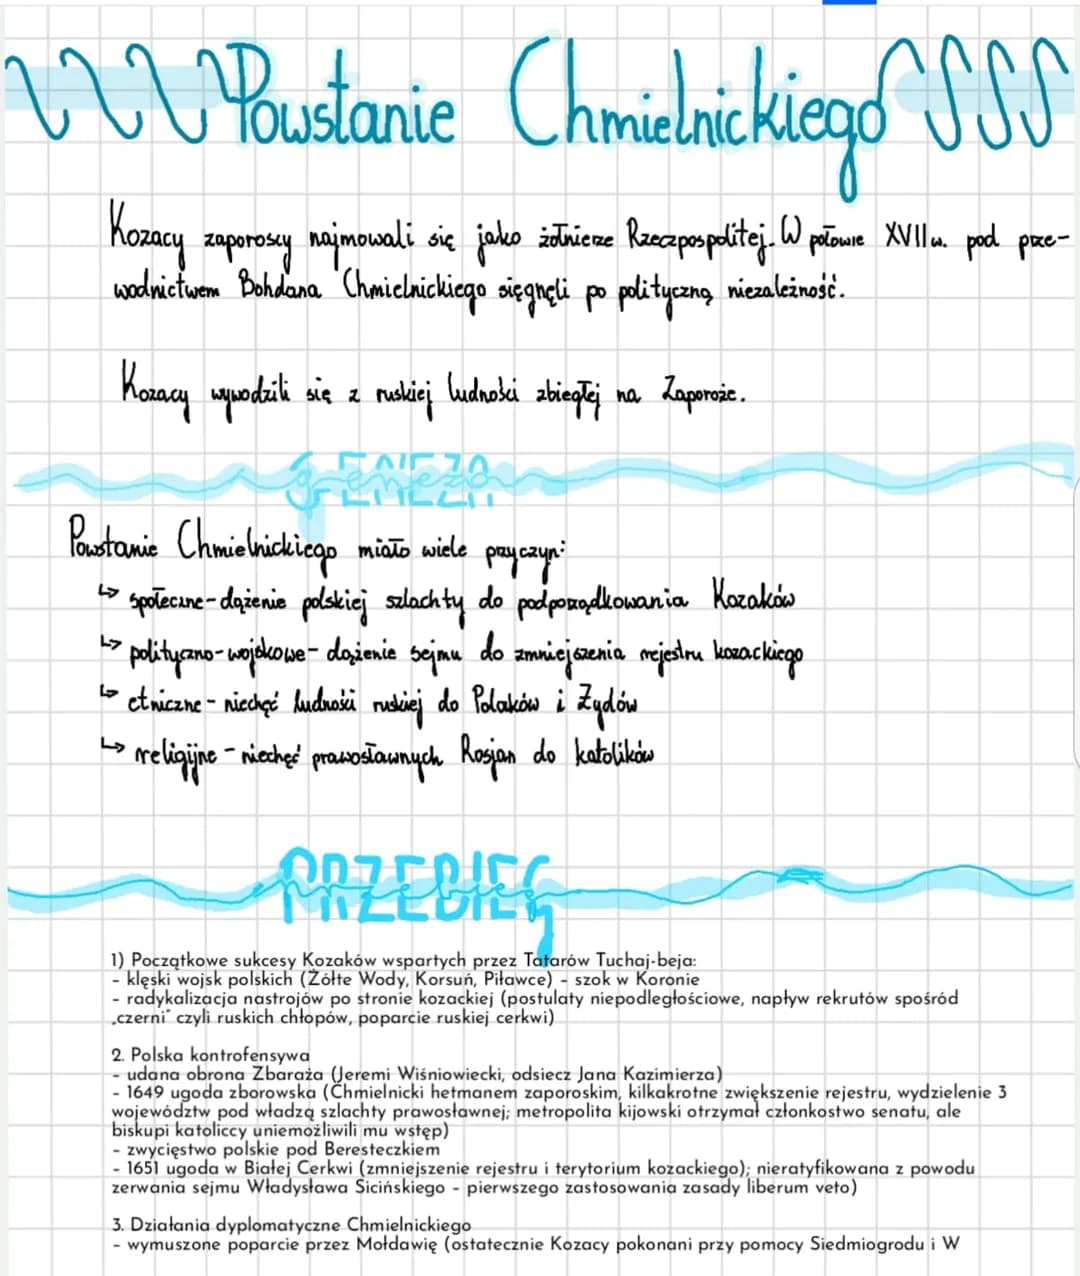 Powstanie Chmielnickiego
Kozacy zaporoscy najmowali się jako żołnierze Rzeczpospolitej. W połowie XVII w. pod prze-
wodnictwem Bohdana Chmielnickiego sięgnęli po polityczną niezależność.
Kozacy wywodzili się z ruskiej ludności zbiegłej na Zaporoże.
GENEZA
Powstanie Chmielnickiego miało wiele przyczyn:
↳ społeczne - dążenie polskiej szlachty do podporządkowania Kozaków
↳ polityczno-wojskowe - dążenie sejmu do zmniejszenia rejestru kozackiego
↳ etniczne - niechęć ludności ruskiej do Polaków i Żydów
↳ religijne - niechęć prawosławnych Rosjan do katolików
PRZEBIEG
1) Początkowe sukcesy Kozaków wspartych przez Tatarów Tuchaj-beja:
- klęski wojsk polskich (Żółte Wody, Korsuń, Piławce) - szok w Koronie
- radykalizacja nastrojów po stronie kozackiej (postulaty niepodległościowe, napływ rekrutów spośród
„czerni” czyli ruskich chłopów, poparcie ruskiej cerkwi)
2. Polska kontrofensywa
- udana obrona Zbaraża (Jeremi Wiśniowiecki, odsiecz Jana Kazimierza)
- 1649 ugoda zborowska (Chmielnicki hetmanem zaporoskim, kilkakrotne zwiększenie rejestru, wydzielenie 3
województw pod władzą szlachty prawosławnej; metropolita kijowski otrzymał członkostwo senatu, ale
biskupi katoliccy uniemożliwili mu wstęp)
- zwycięstwo polskie pod Beresteczkiem
- 1651 ugoda w Białej Cerkwi (zmniejszenie rejestru i terytorium kozackiego); nieratyfikowana z powodu
zerwania sejmu Władysława Sicińskiego - pierwszego zastosowania zasady liberum veto)
3. Działania dyplomatyczne Chmielnickiego
- wymuszone poparcie przez Mołdawię (ostatecznie Kozacy pokonani przy pomocy Siedmiogrodu i W